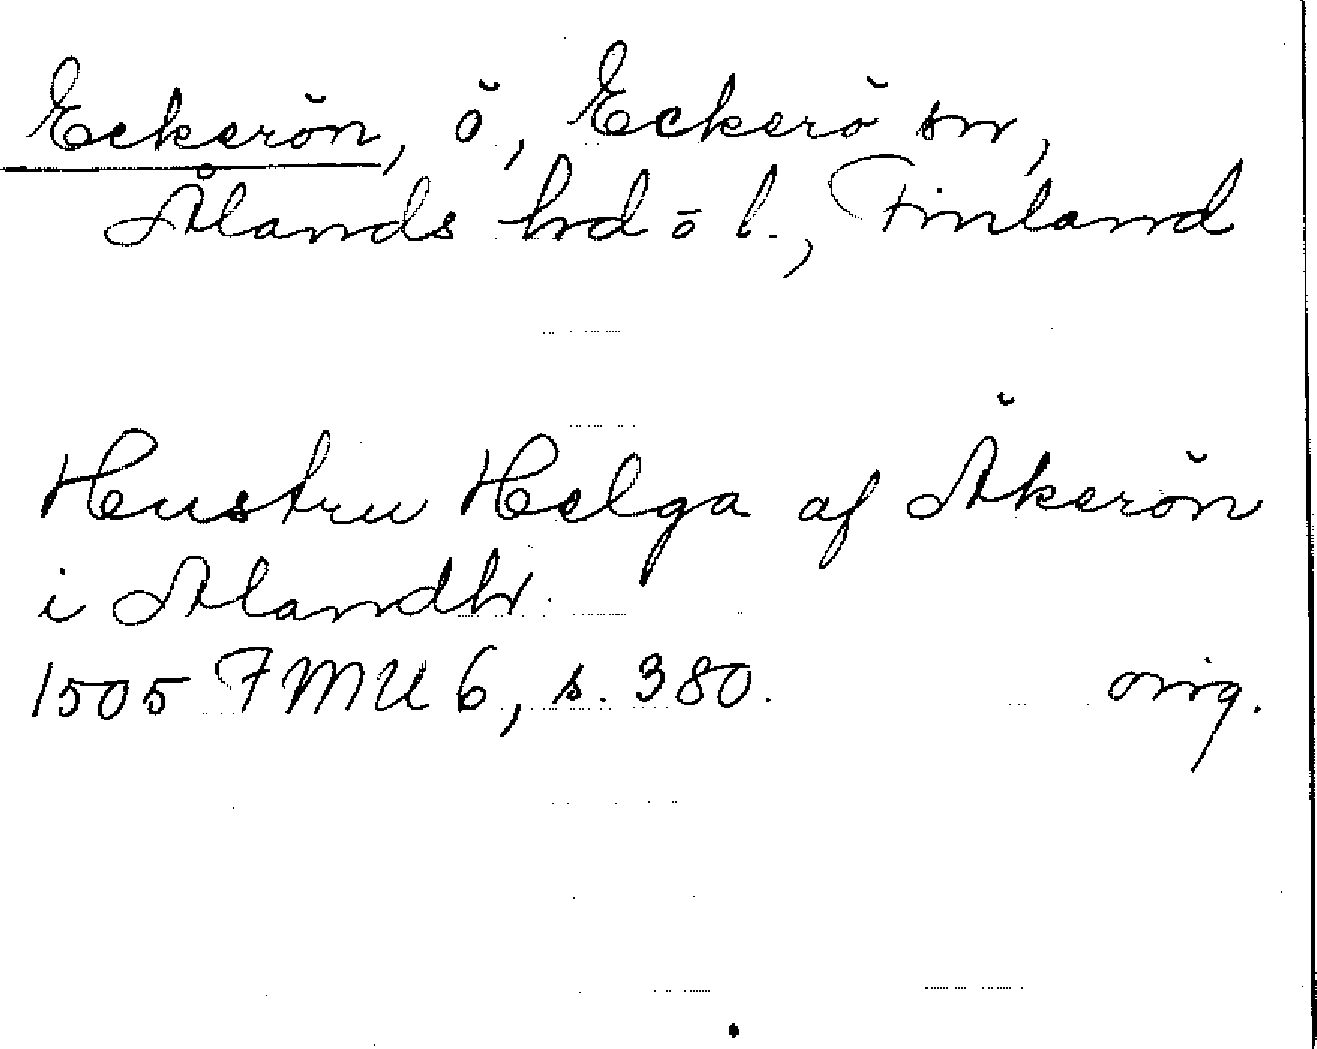 Eckerön, ö, Eckerö sn,
Ålands hd o l., Finland
Hustru Helga af Äkerön
i Alandh.
1505 FMU 6, s. 380. orig.